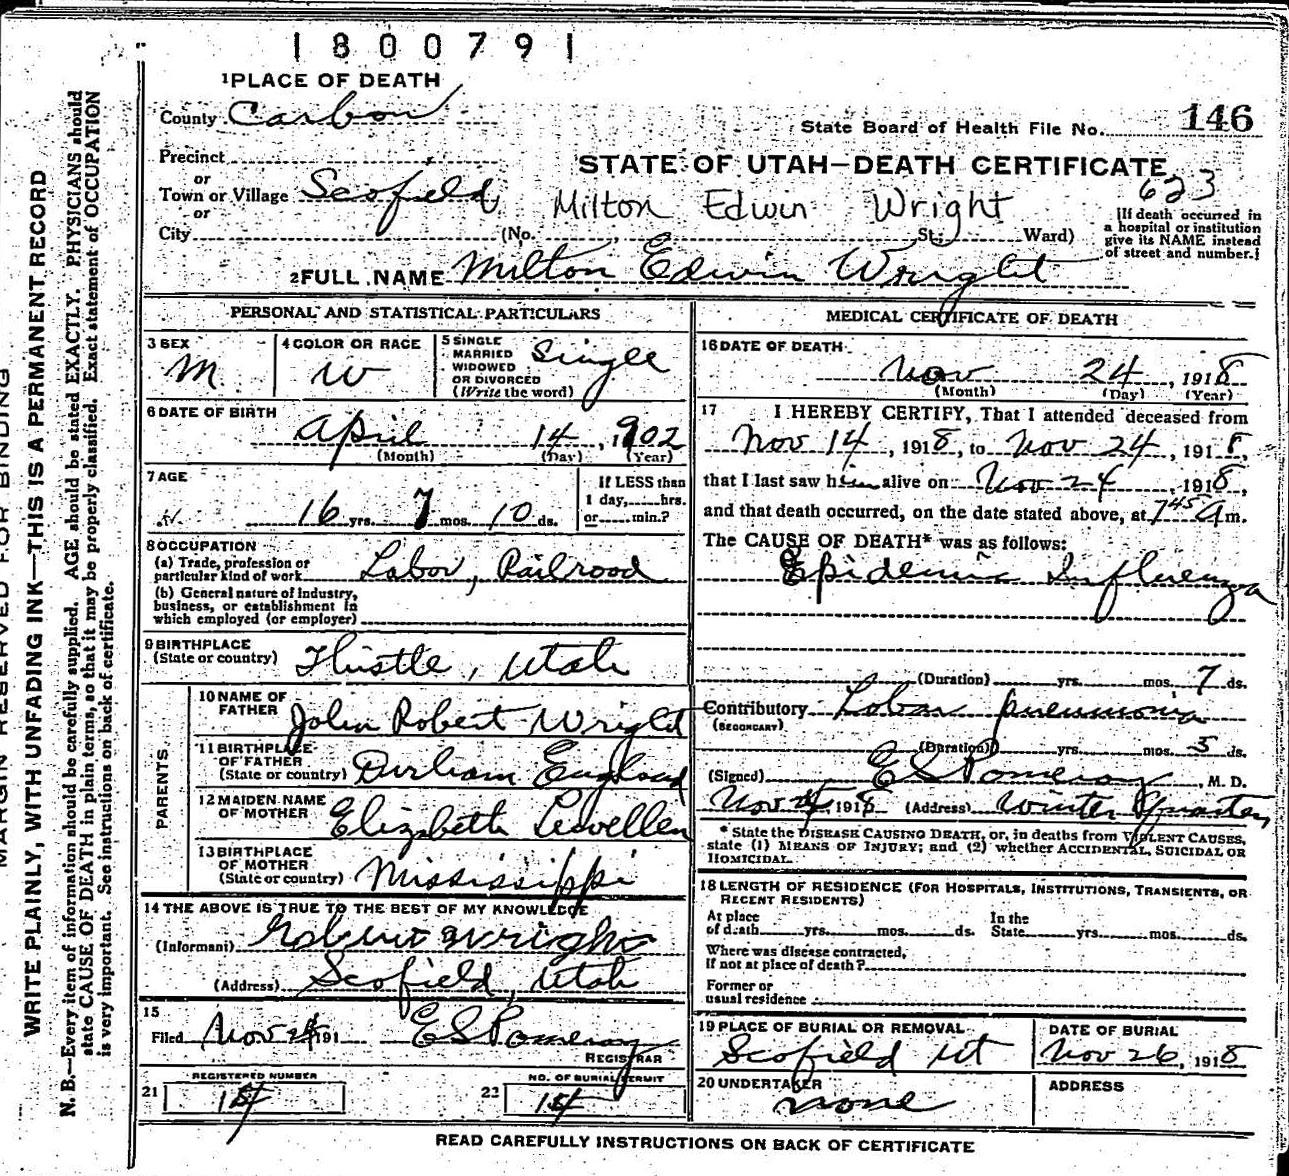 1800791
1 PLACE OF DEATH
County Carbon
State Board of Health File No. 146
Precinct
or
STATE OF UTAH—DEATH CERTIFICATE
623
Town or Village Scofield
or
Milton Edwin Wright
City (No. St.; Ward)
[If death occurred in
a hospital or institution
give its NAME instead
of street and number.]
2 FULL NAME Milton Edwin Wright
PERSONAL AND STATISTICAL PARTICULARS
3 SEX
M
4 COLOR OR RACE
W
5 SINGLE
MARRIED
WIDOWED
OR DIVORCED
(Write the word)
Single
6 DATE OF BIRTH
April 14, 1902
(Month) (Day) (Year)
7 AGE
16 yrs. 7 mos. 10 ds.
If LESS than
1 day, hrs.
or min.?
8 OCCUPATION
(a) Trade, profession or
particular kind of work Labor, Railroad
(b) General nature of industry,
business, or establishment in
which employed (or employer)
9 BIRTHPLACE
(State or country) Thistle, Utah
PARENTS
10 NAME OF
FATHER John Robert Wright
11 BIRTHPLACE
OF FATHER
(State or country) Durham England
12 MAIDEN NAME
OF MOTHER Elizabeth Lewellen
13 BIRTHPLACE
OF MOTHER
(State or country) Mississippi
14 THE ABOVE IS TRUE TO THE BEST OF MY KNOWLEDGE
(Informant) Robert Wright
(Address) Scofield, Utah
15
Filed Nov 191 E S Pomeroy
REGISTRAR
REGISTERED NUMBER
21
NO. OF BURIAL PERMIT
22
MEDICAL CERTIFICATE OF DEATH
16 DATE OF DEATH
Nov 24, 1918
(Month) (Day) (Year)
17 I HEREBY CERTIFY, That I attended deceased from
Nov 14, 1918, to Nov 24, 1918,
that I last saw him alive on Nov 24, 1918,
and that death occurred, on the date stated above, at 7 45 A m.
The CAUSE OF DEATH* was as follows:
Epidemic Influenza
(Duration) yrs. mos. 7 ds.
Contributory Lobar pneumonia
(SECONDARY)
(Duration) yrs. mos. 5 ds.
(Signed) E S Pomeroy, M. D.
Nov , 1918 (Address) Winter Quarters
* State the DISEASE CAUSING DEATH, or, in deaths from VIOLENT CAUSES,
state (1) MEANS OF INJURY; and (2) whether ACCIDENTAL, SUICIDAL OR
HOMICIDAL.
18 LENGTH OF RESIDENCE (FOR HOSPITALS, INSTITUTIONS, TRANSIENTS, OR
RECENT RESIDENTS)
At place
of death yrs. mos. ds.
In the
State yrs. mos. ds.
Where was disease contracted,
If not at place of death?
Former or
usual residence
19 PLACE OF BURIAL OR REMOVAL
Scofield Ut
DATE OF BURIAL
Nov 26, 1918
20 UNDERTAKER
none
ADDRESS
READ CAREFULLY INSTRUCTIONS ON BACK OF CERTIFICATE
MARGIN RESERVED FOR BINDING
WRITE PLAINLY, WITH UNFADING INK—THIS IS A PERMANENT RECORD
N. B.—Every item of information should be carefully supplied. AGE should be stated EXACTLY. PHYSICIANS should
state CAUSE OF DEATH in plain terms, so that it may be properly classified. Exact statement of OCCUPATION
is very important. See instructions on back of certificate.